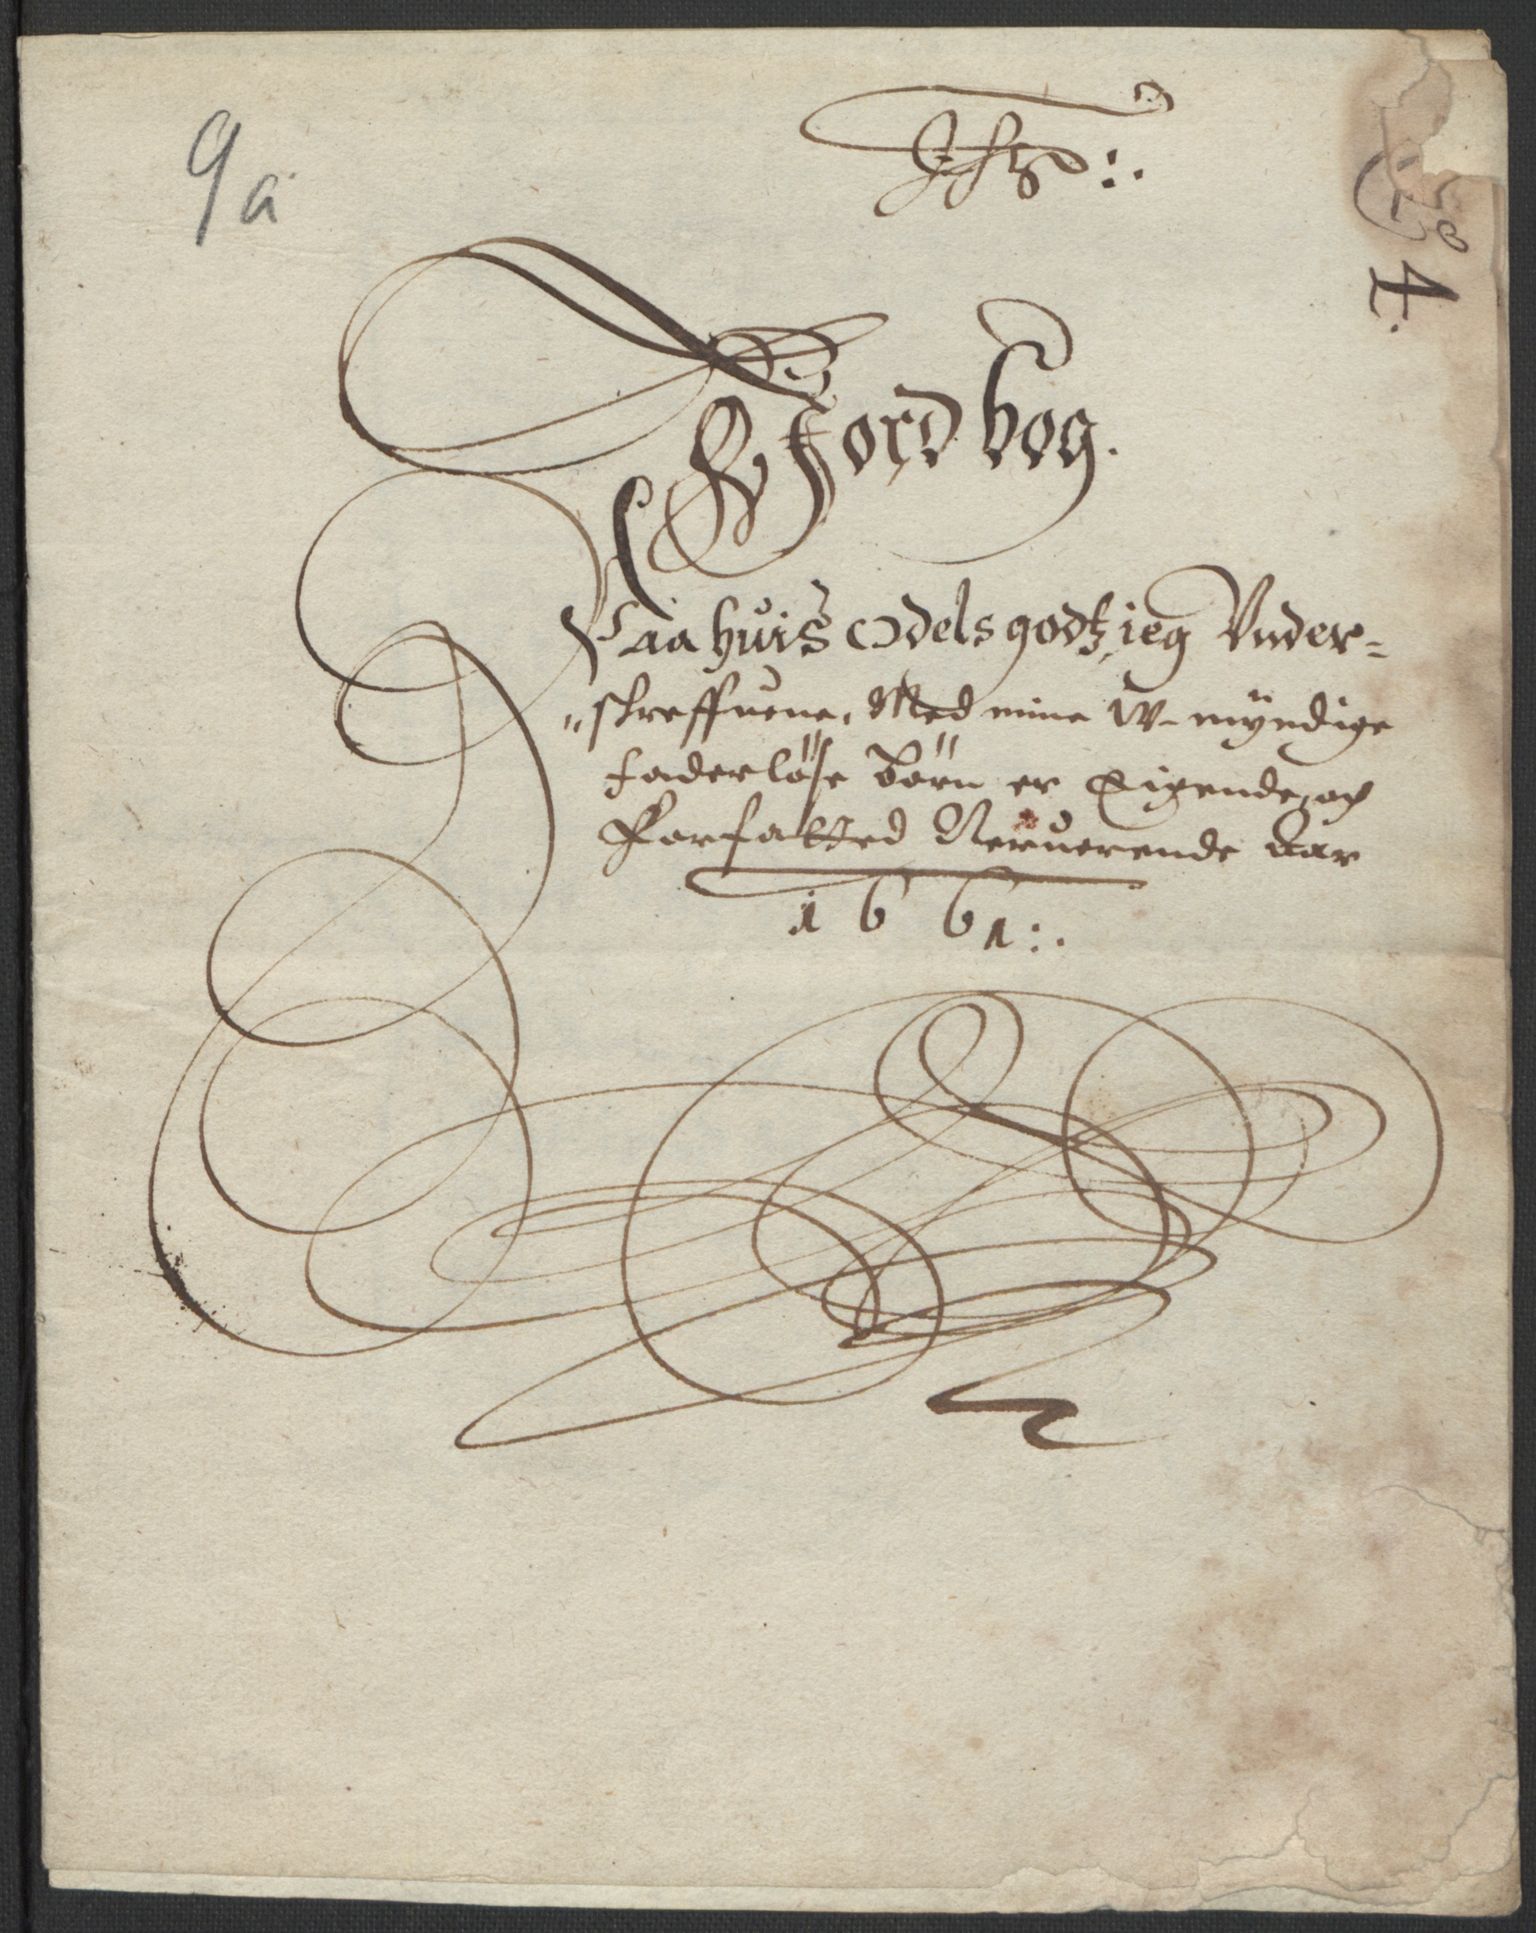 9a
Jhs:.
N 8
4.
Jordbog.
Paa huis Odels godtz, ieg Vnder=
"skreffuene, Med mine W-mÿndige
faderlöse börn er Eigende, och
Forfatted Neruerende Aar
1661:.